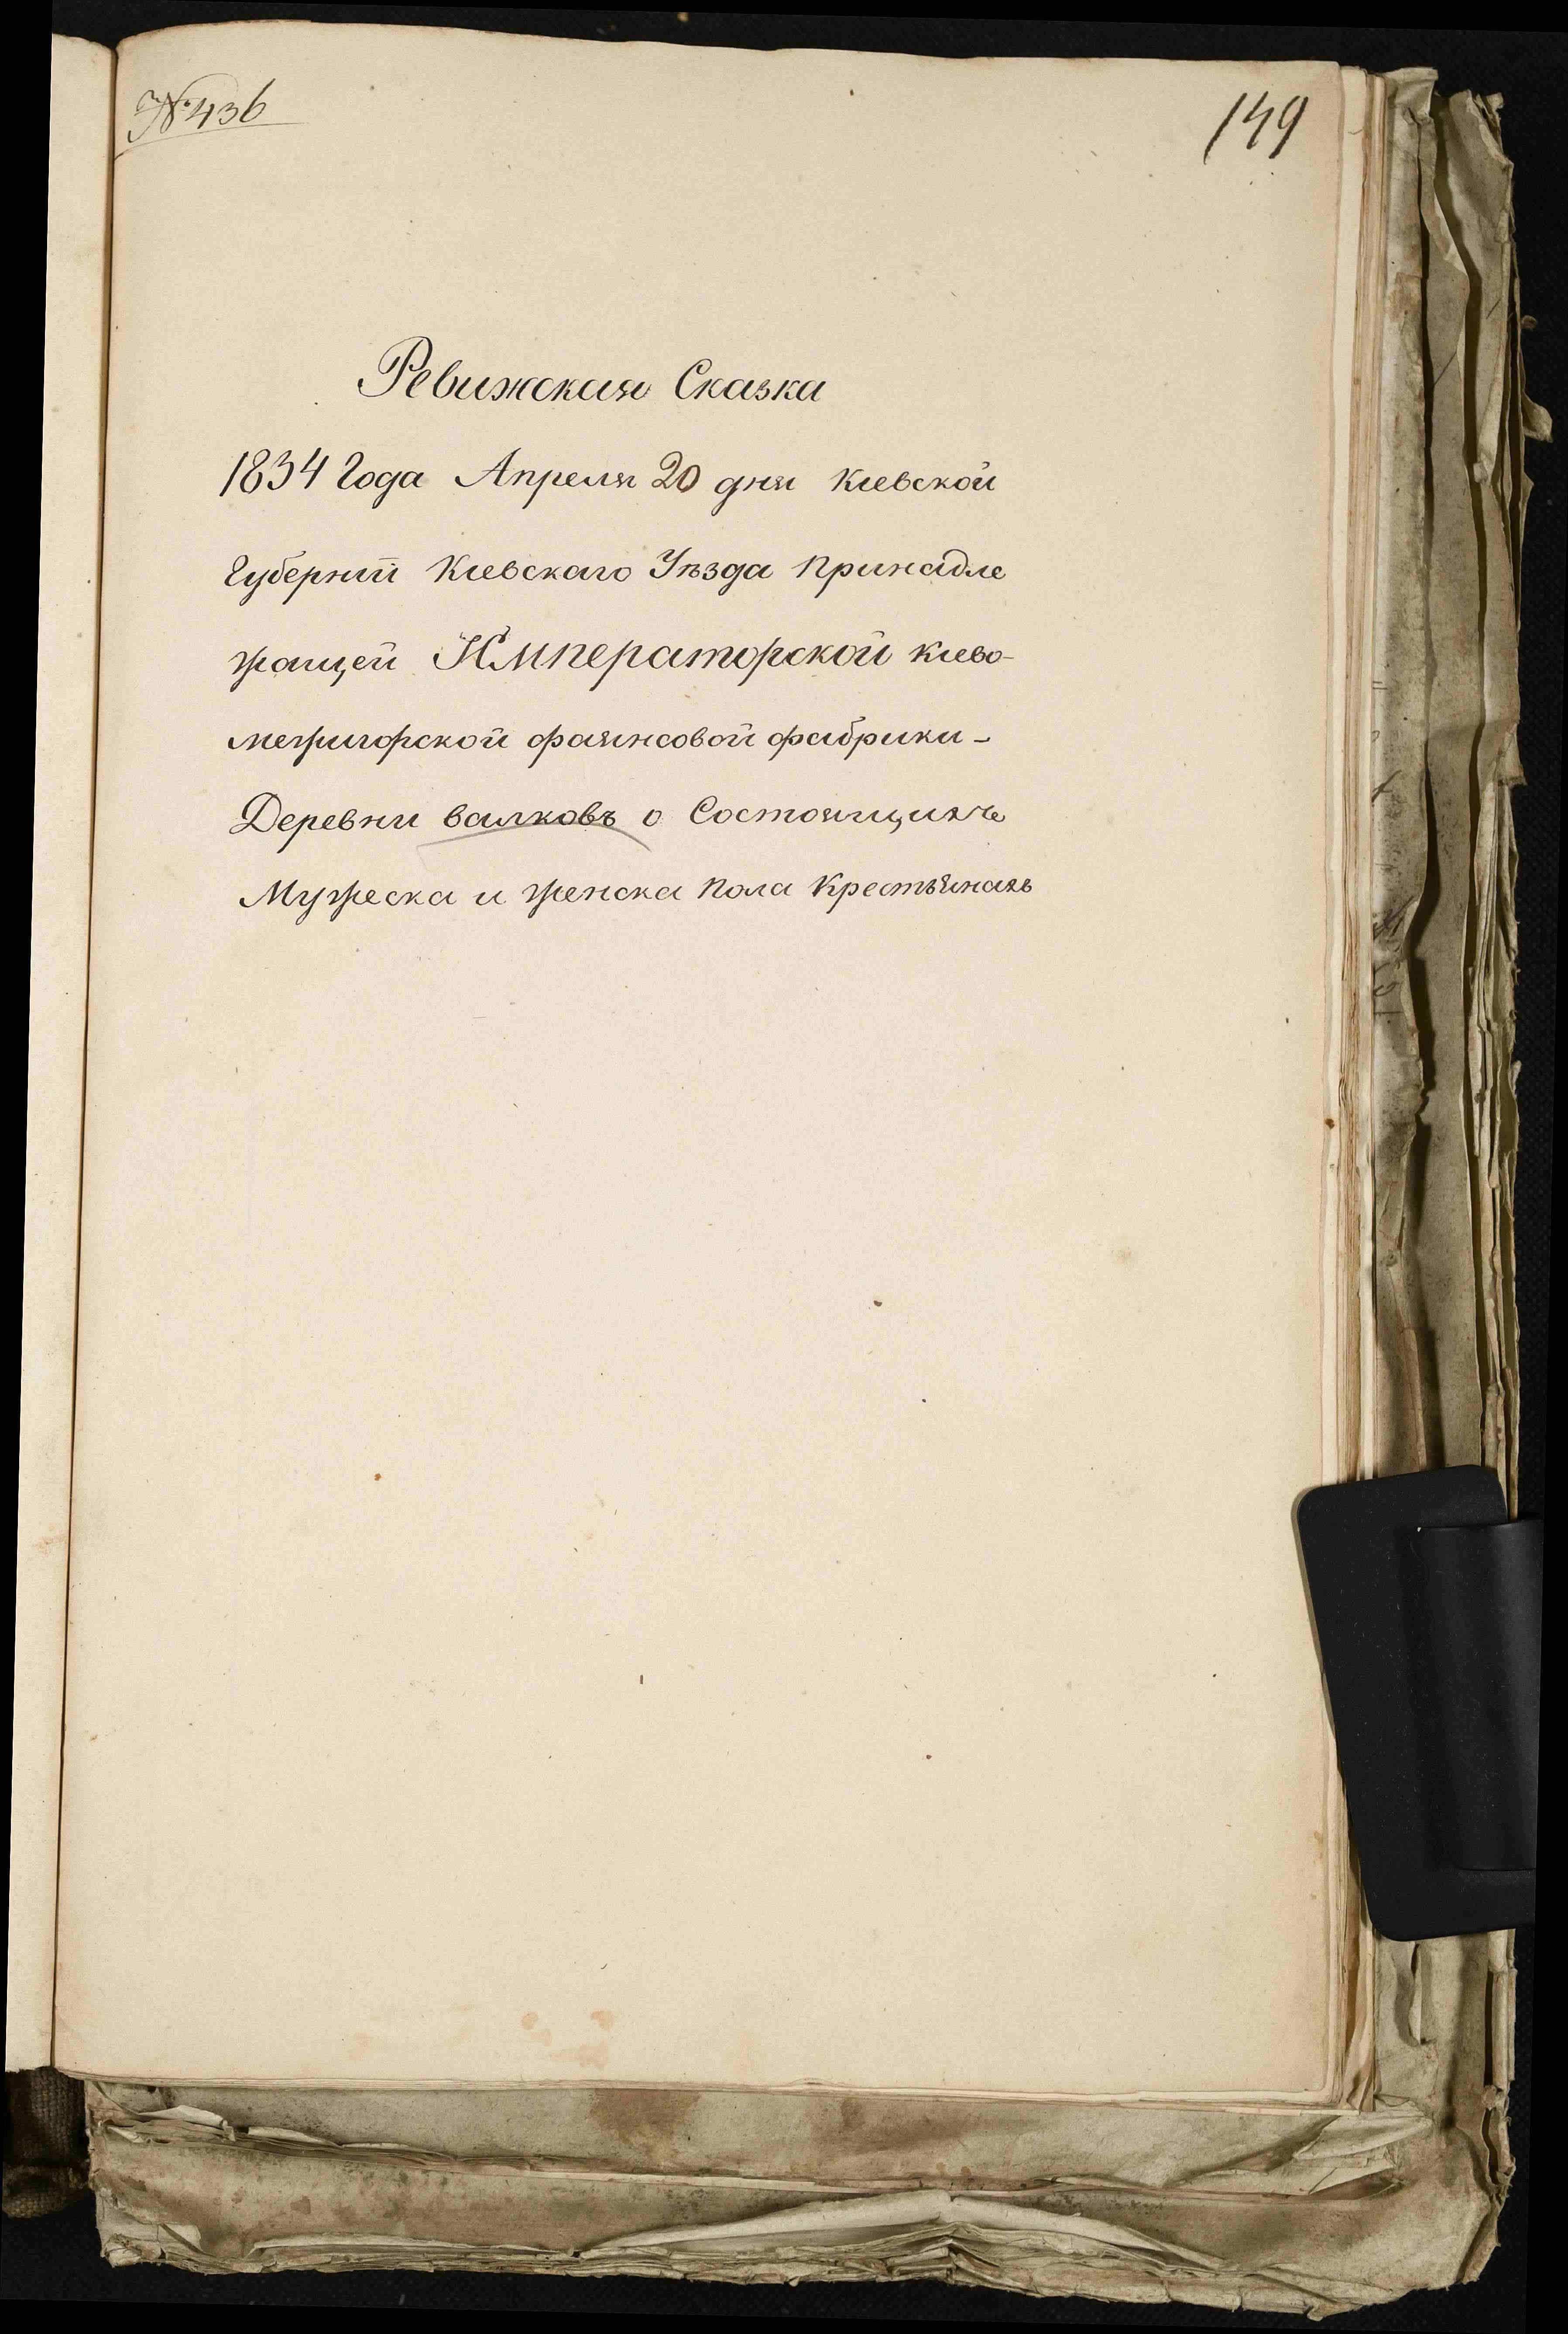 № 436
149
Ревижская Сказка
1834 Года Апреля 20 дня Киевской
Губернии Киевскаго Уѣзда принадле
жащей Императорской киево-
межигорской фаянсовой фабрики -
Деревни валковъ о Состоящихъ
Мужеска и женска пола Крестьянахъ